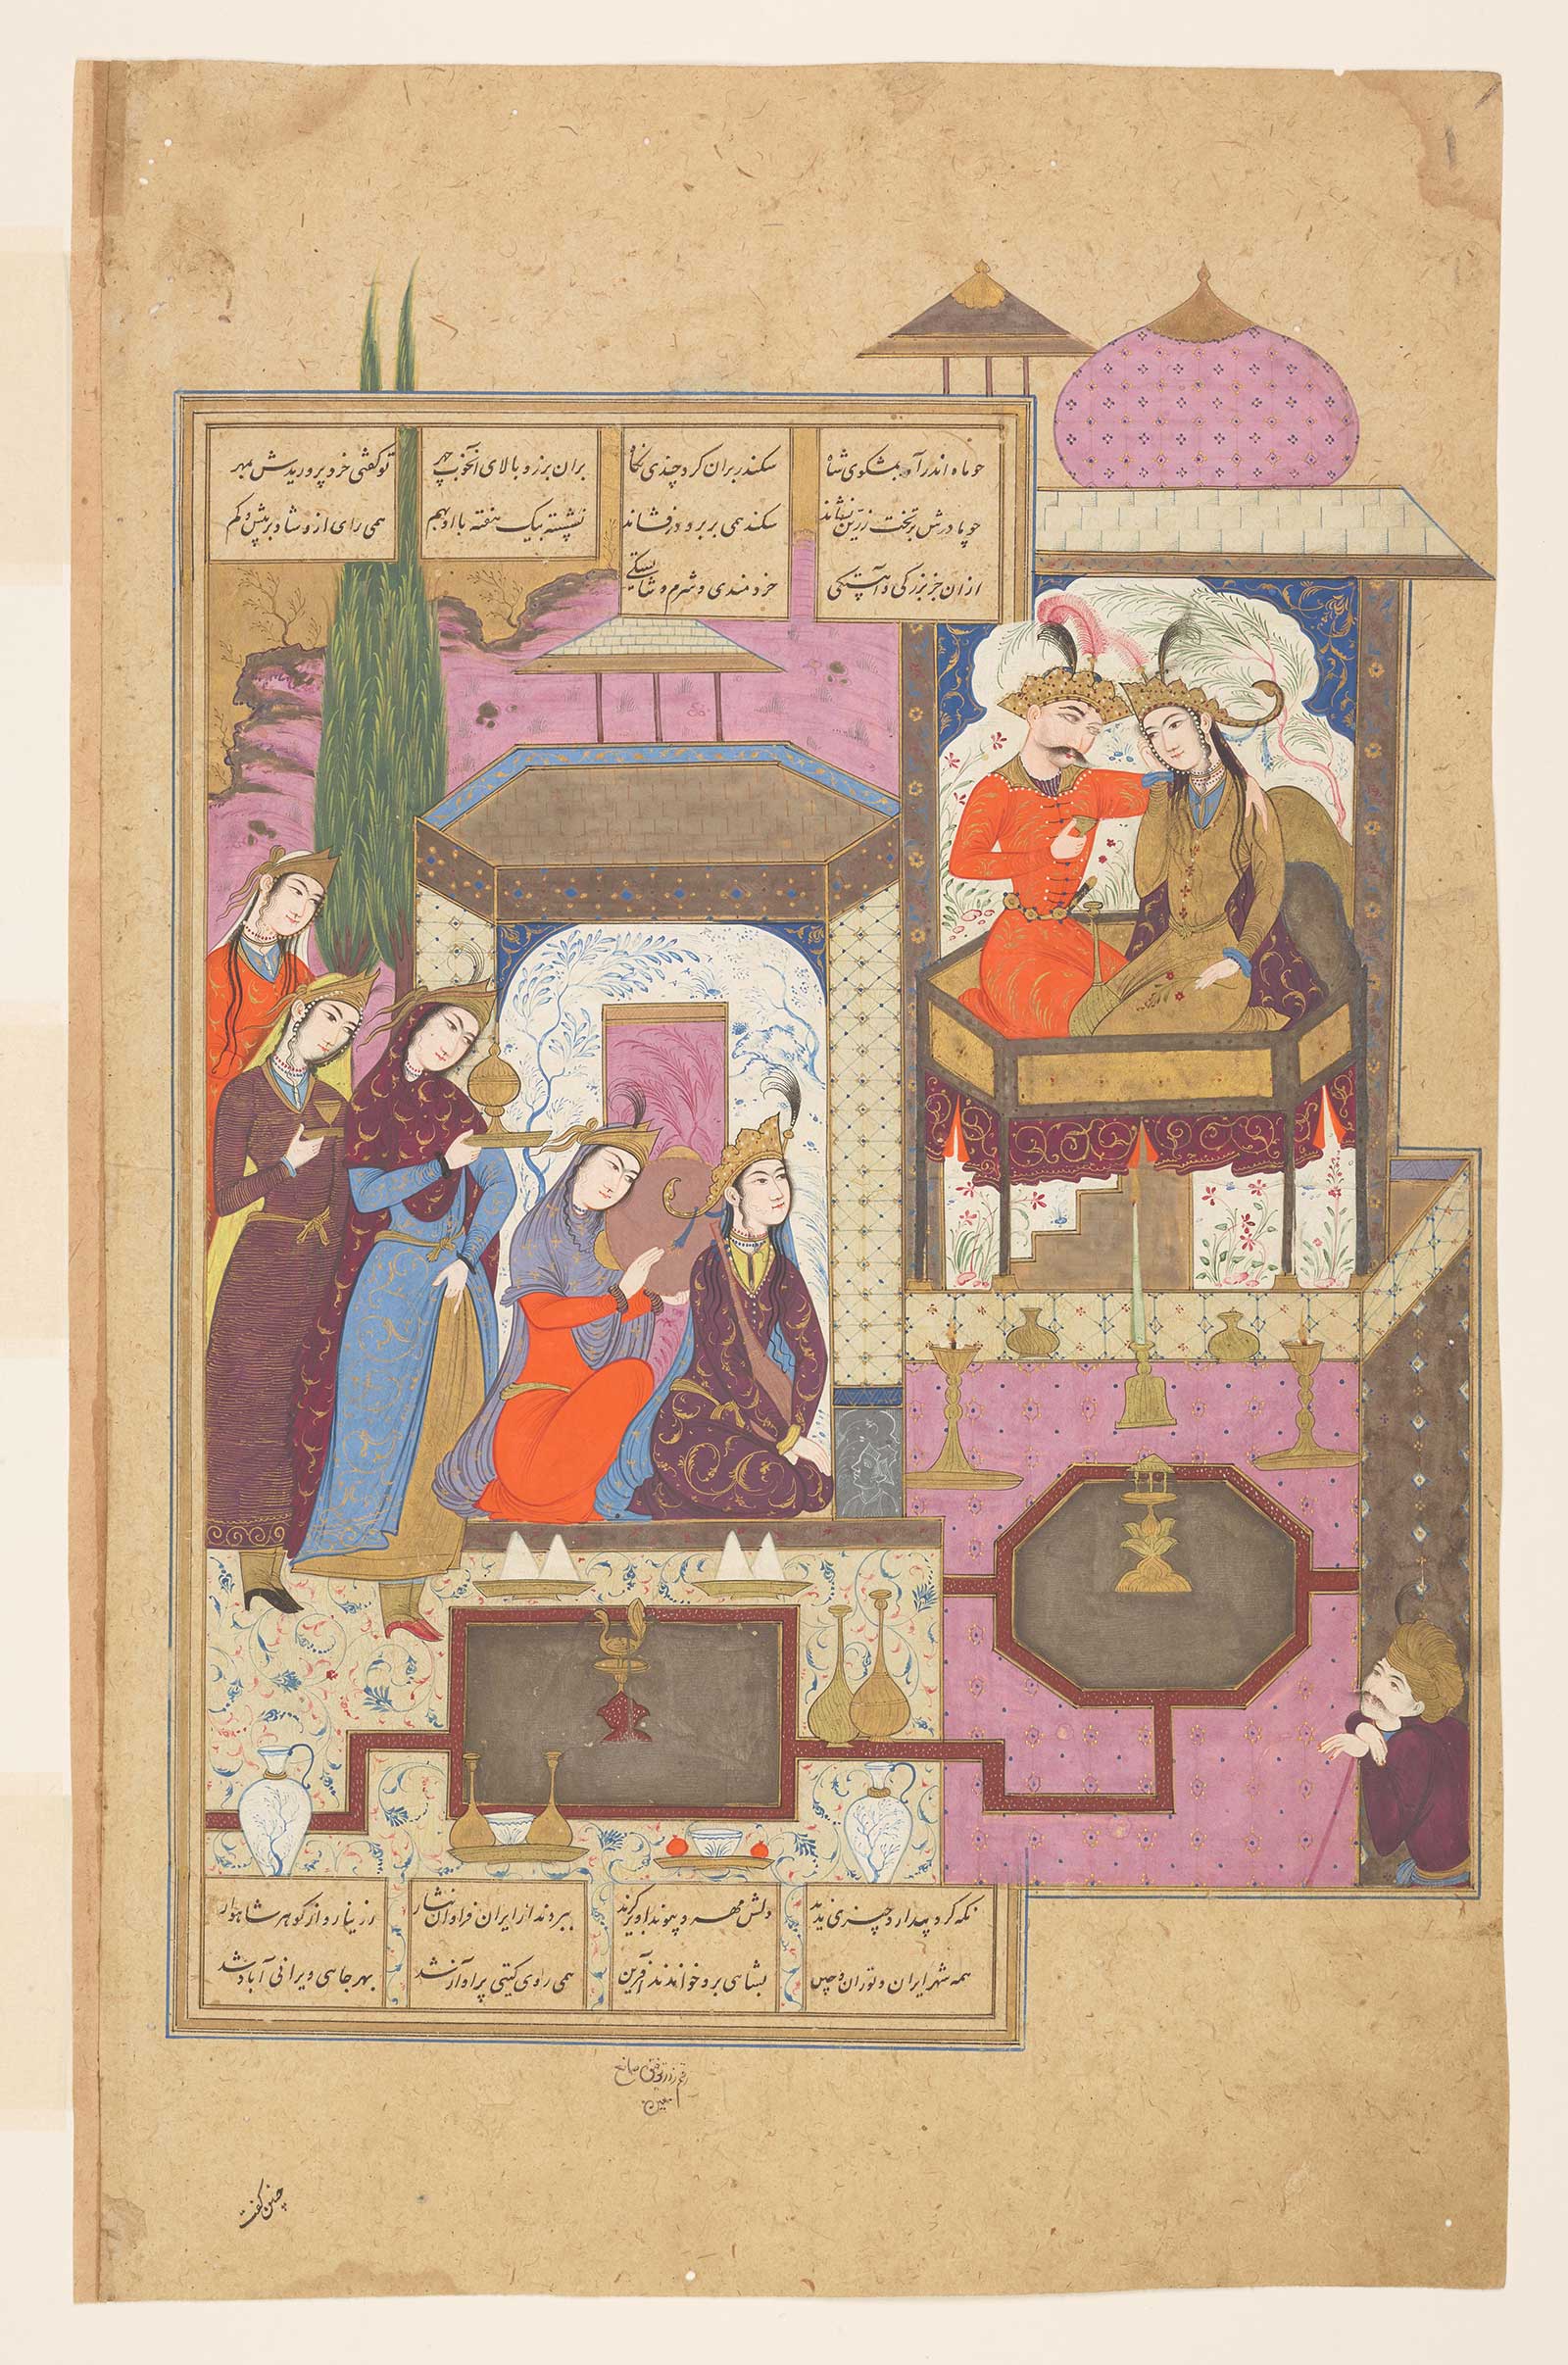 چو ماه اندر آمد بمشکوی شاه سکندر بران کرد چندی نگاه
بران برز و بالای آن خوب چهر تو گفتی خرد پروریدش بمهر
چو مادرش بر تخت زرین نشاند سکندر همی بر برو در فشاند
نشسته بیک هفته با او بهم همی رای زد شاد بر بیش و کم
ازان جز بزرگی و آهستگی خردمندی و شرم و شایستگی
نگه کرد بیدار و چیزی ندید دلش مهر و پیوند او برگزید
ببردند از ایران فراوان نثار ز دینار و از گوهر شاهوار
همه شهر ایران و توران و چین بشاهی برو خواندند آفرین
همی روی گیتی پر از داد شد بهر جای ویرانی آباد شد
چنین گفت